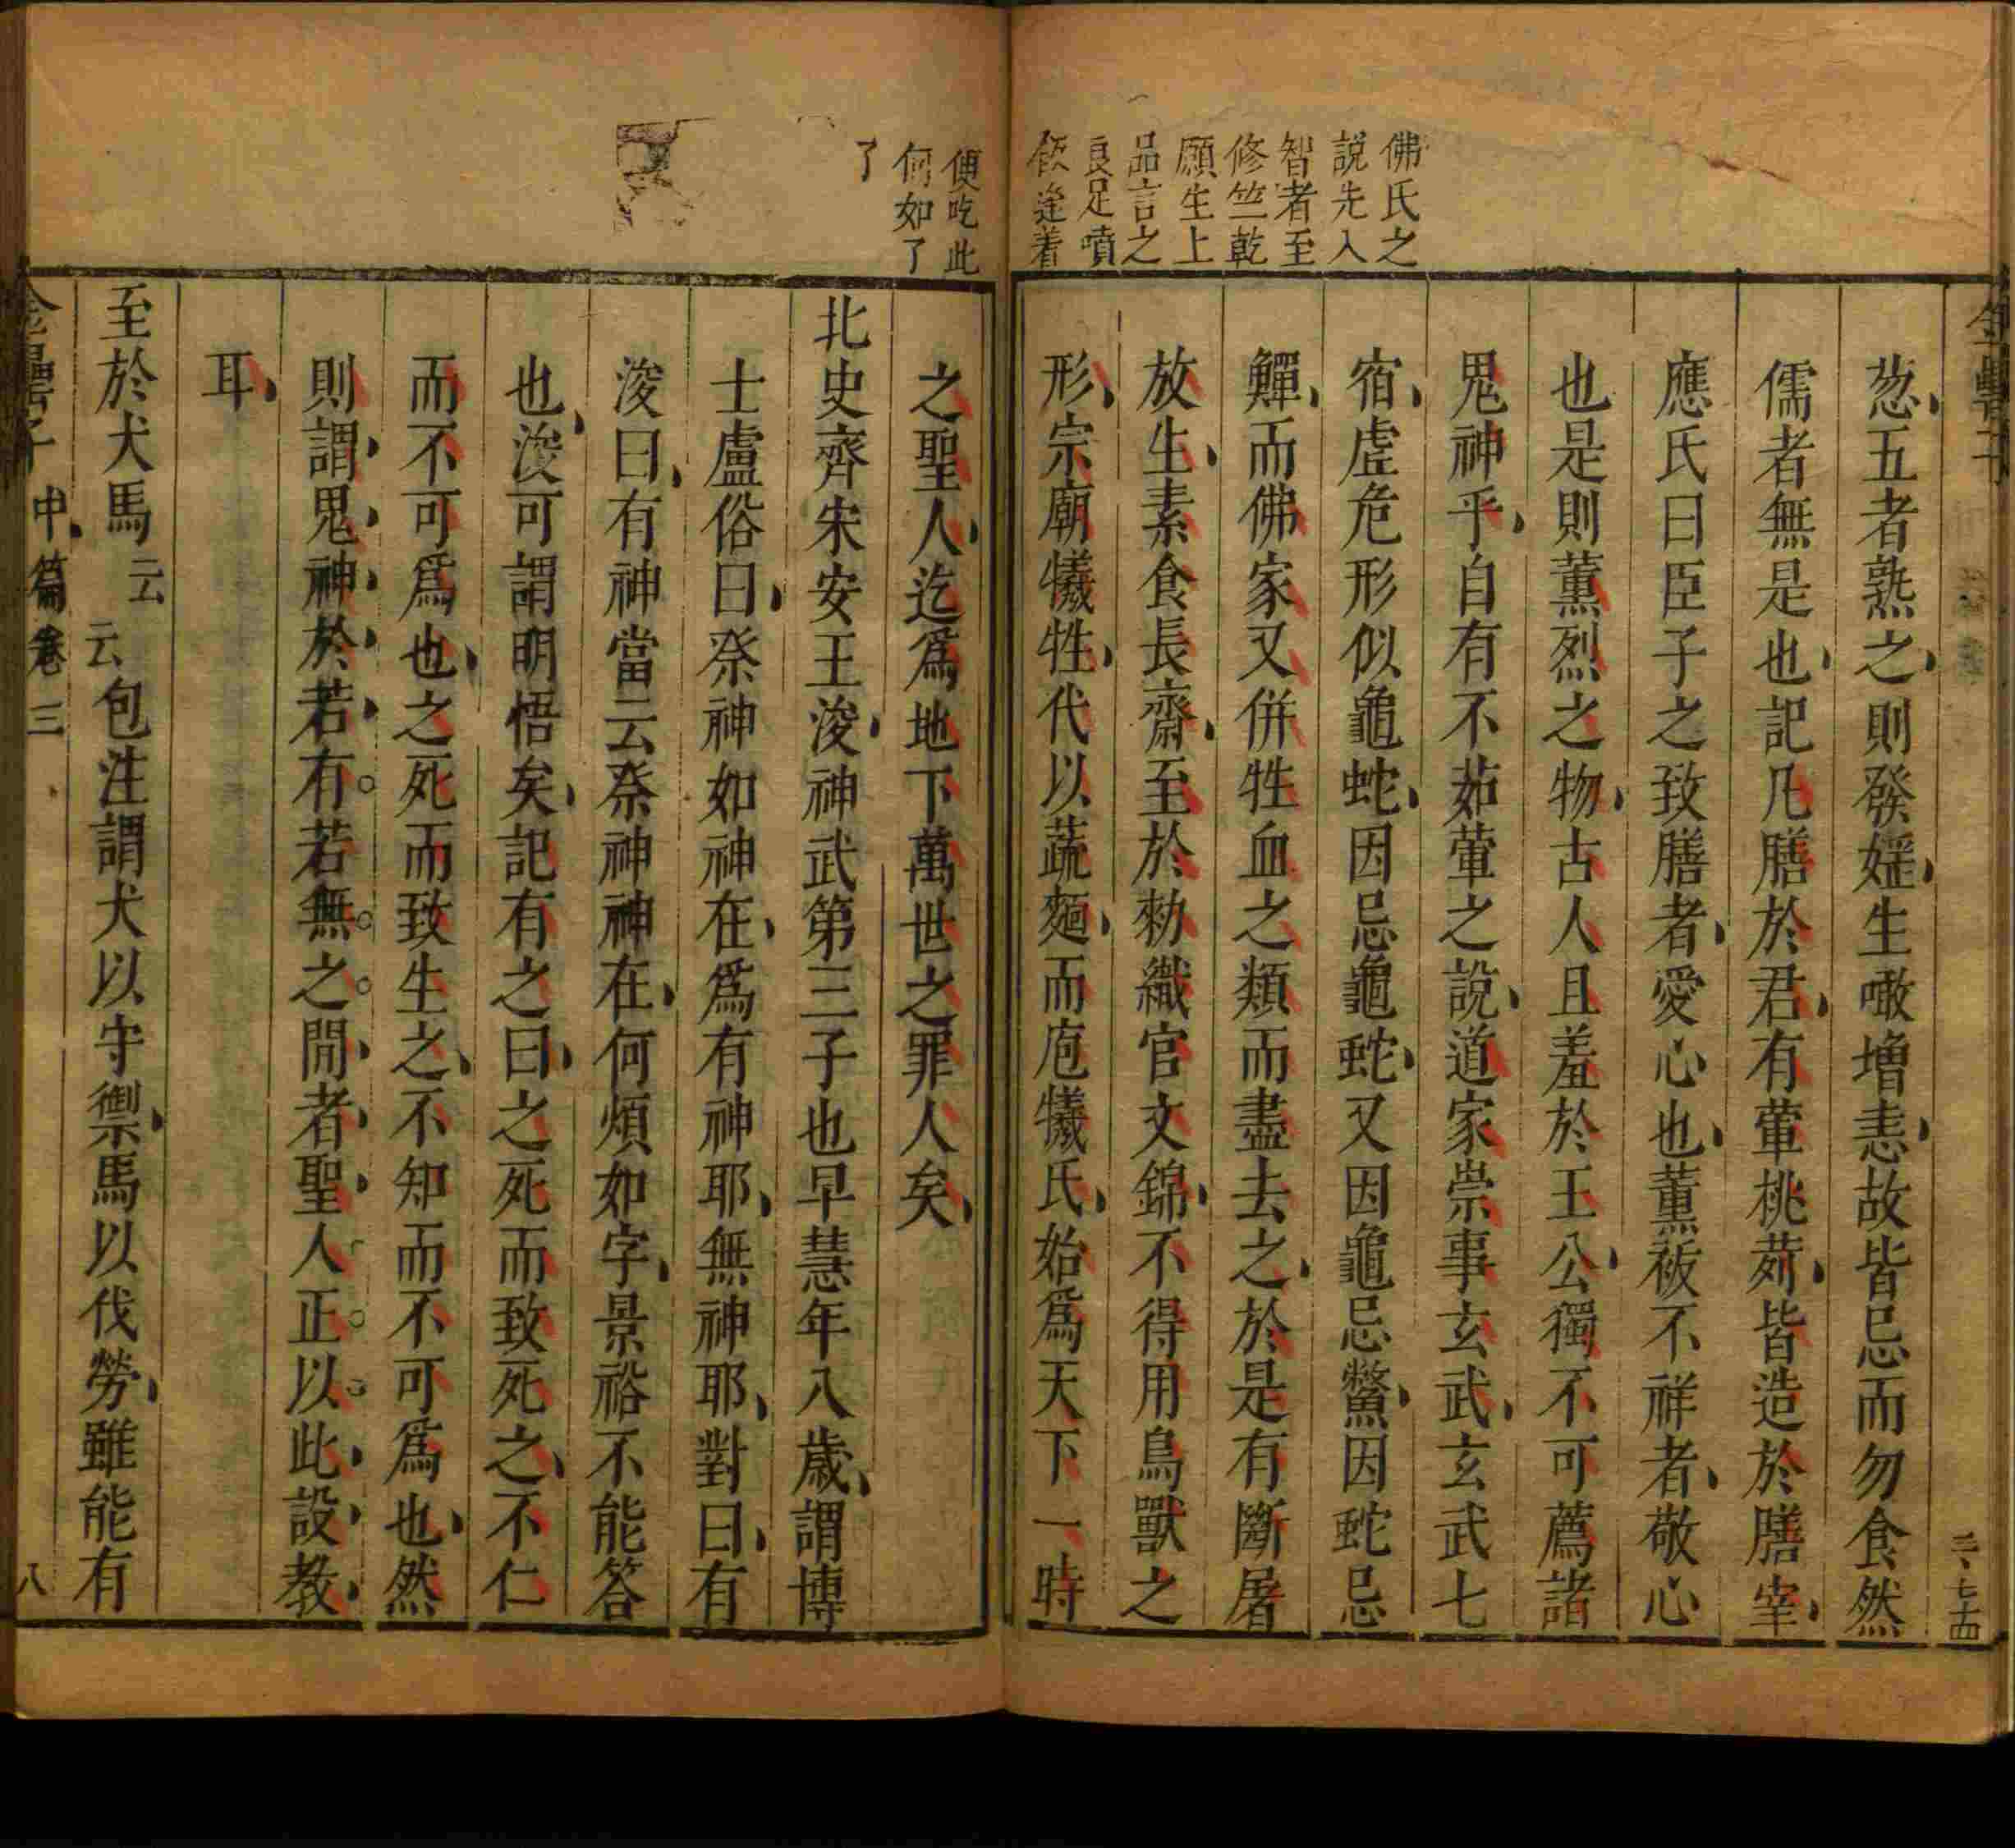 佛氏之
說先入
智者至
修竺乾
願生上
品言之
良足噴
飯逢着
葱五者熟之則發婬生噉增恚故皆忌而勿食然
儒者無是也記凡膳於君有葷桃茢皆造於膳宰
應氏曰臣子之致膳者愛心也薰袚不祥者敬心
也是則薰烈之物古人且羞於王公獨不可薦諸
鬼神乎自有不茹葷之說道家崇事玄武玄武七
宿虛危形似龜蛇因忌龜蛇又因龜忌鱉因蛇忌
鱓而佛家又併牲血之類而盡去之於是有斷屠
放生素食長齋至於勑織官文錦不得用鳥獸之
形宗廟犧牲代以蔬麵而庖犧氏始為天下一時
便吃此
何如了
了
之聖人迄為地下萬世之罪人矣
北史齊宋安王浚神武第三子也早慧年八歲謂博
士盧俗曰祭神如神在為有神耶無神耶對曰有
浚曰有神當云祭神神在何煩如字景裕不能答
也浚可謂明悟矣記有之曰之死而致死之不仁
而不可為也之死而致生之不知而不可為也然
則謂鬼神於若有若無之間者聖人正以此設教
耳
至於犬馬云云包注謂犬以守禦馬以伐勞雖能有
金罍子 中篇卷三 八